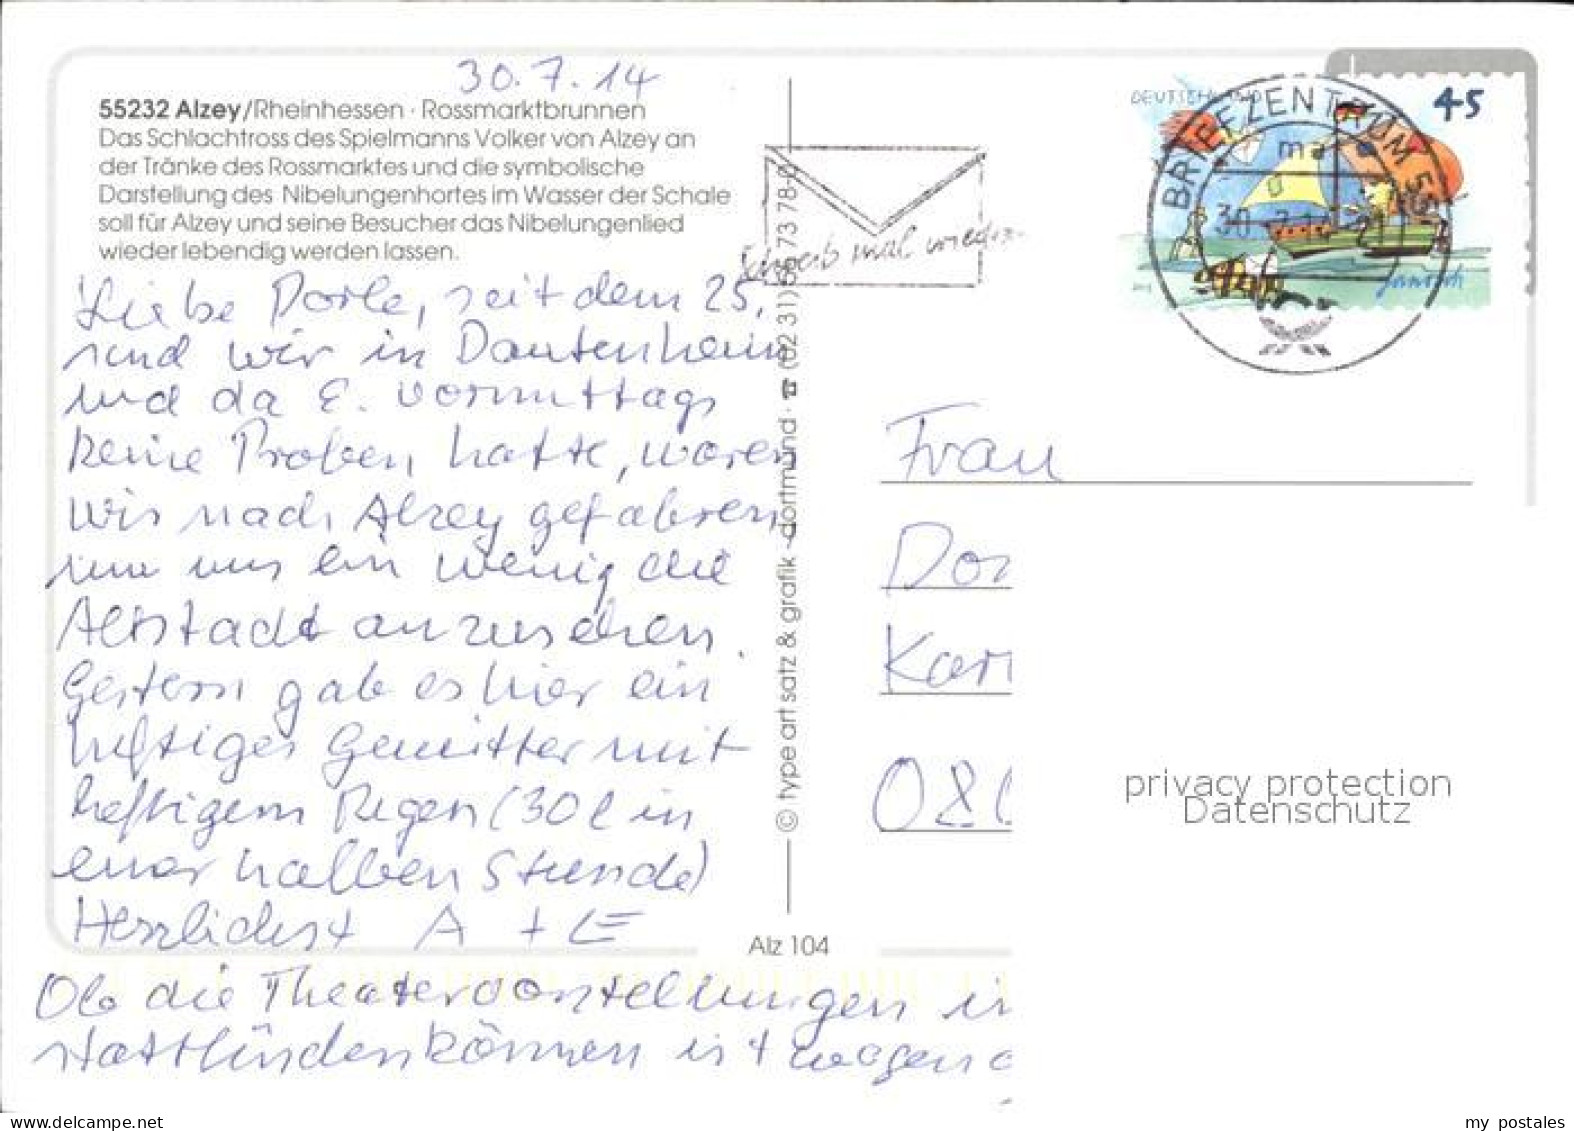 30.7.14
55232 Alzey/Rheinhessen · Rossmarktbrunnen
Das Schlachtross des Spielmanns Volker von Alzey an
der Tränke des Rossmarktes und die symbolische
Darstellung des Nibelungenhortes im Wasser der Schale
soll für Alzey und seine Besucher das Nibelungenlied
wieder lebendig werden lassen.
Liebe Dorle, seit dem 25.
sind wir in Dautenheim
und da E. vormittags
keine Proben hatte, waren
wir nach Alzey gefahren,
um uns ein wenig die
Altstadt anzusehen.
Gestern gab es hier ein
heftiges Gewitter mit
heftigem Regen (30 l in
einer halben Stunde)
Herzlichst A + E
Ob die Theatervorstellungen in
stattfinden können ist wegen
© type art satz & grafik · dortmund · ☎ (02 31) 73 78-0
Alz 104
Schreib mal wieder
DEUTSCHLAND
45
BRIEFZENTRUM 55
ma
30.7.14-21
Janosch
Frau
Dor
Kar
08
privacy protection
Datenschutz
my postales